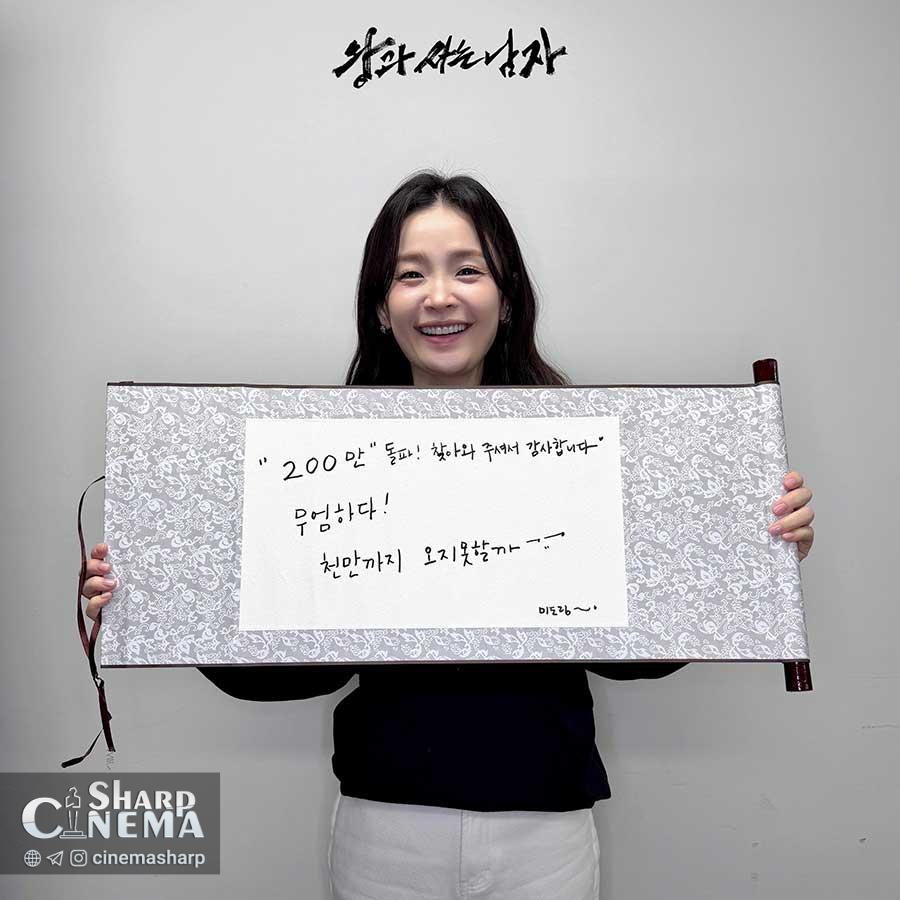 왕과 사는 남자
"200만" 돌파! 찾아와 주셔서 감사합니다"
무엄하다!
천만까지 오지못할까
미도랑~
SHARP
CINEMA
cinemasharp